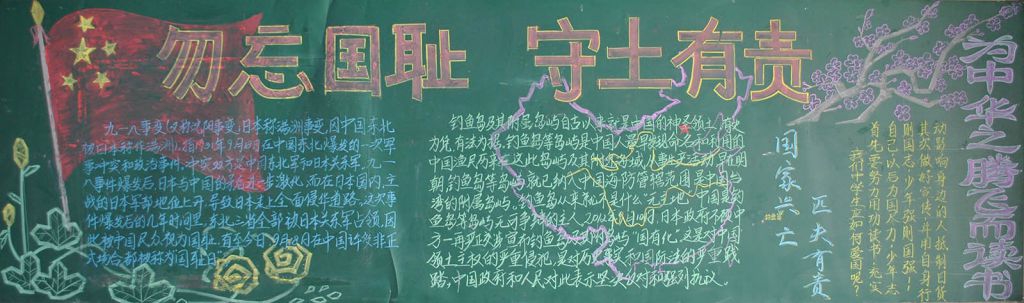 勿忘国耻 守土有责
九一八事变(又称沈阳事变,日本称满洲事变,因中国东北
被日本称作满洲),指1931年9月18日在中国东北爆发的一次军
事冲突和政治事件,中突双方是中国东北军和日本关东军,九一
八事件爆发后,日本与中国的矛盾进一步激化,而在日本国内,主
战的日本军部地位上升,导致日本走上全面侵华道路,这次事
件爆发后的几年时间里,东北三省全部被日本关东军占领,因
此被中国民众视为国耻,直至今日,9月18日在中国许多非正
式场合都被称为国耻日。
钓鱼岛及其附属岛屿自古以来就是中国的神圣领土,有史
为凭,有法为据,钓鱼岛等岛屿是中国人最早
中国渔民历来在这此岛屿及其 海域 从事 生产活动,早在明
朝,钓鱼岛等岛屿就已纳入中国海防管辖范围,是中国台
湾的附属岛屿,钓鱼岛从来就不是什么"无主地",中国是钓
鱼岛等岛屿无可争辩的主人,2012年9月10日,日本政府不顾中
方一再严正交涉,宣布 钓鱼岛 岛屿"国有化",这是对中国
领土主权的严重侵犯,是对历史事实和国际法的严重践
踏,中国政府和人民对此表示坚决反对和强烈抗议。
国家兴亡
匹夫有责
我们中学生应如何爱国呢?
首先要努力用功读书,充实
自己以后为国尽力,少年志
则国志,少年强则国强!
其次做好宣传,并用自身行
动影响身边的人抵制日货
为中华之腾飞而读书